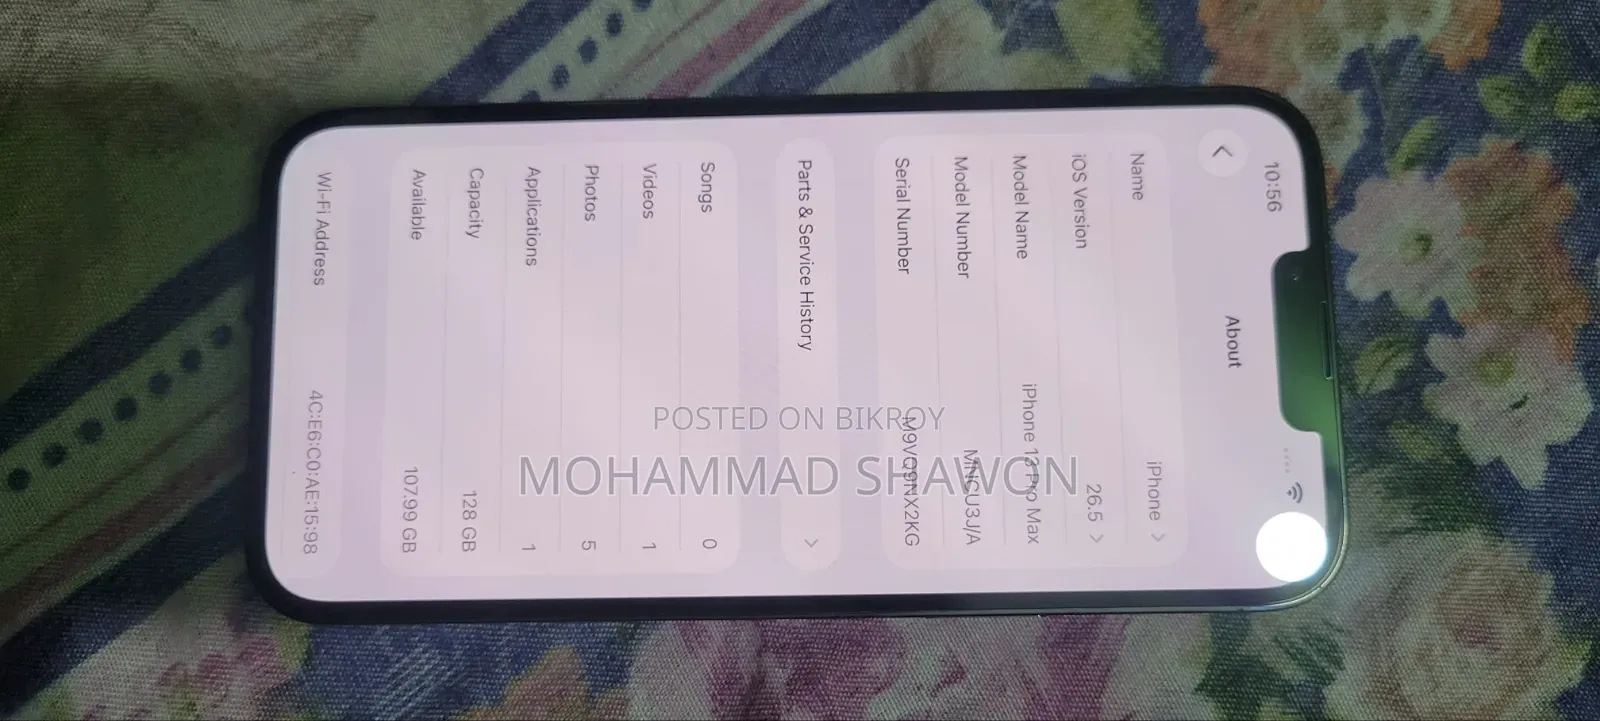 10:56
About
Name iPhone
iOS Version 26.5
Model Name iPhone 13 Pro Max
Model Number MNCU3J/A
Serial Number M9VQ9NX2KG
Parts & Service History
Songs 0
Videos 1
Photos 5
Applications 1
Capacity 128 GB
Available 107.99 GB
Wi-Fi Address 4C:E6:C0:AE:15:98
POSTED ON BIKROY
MOHAMMAD SHAWON